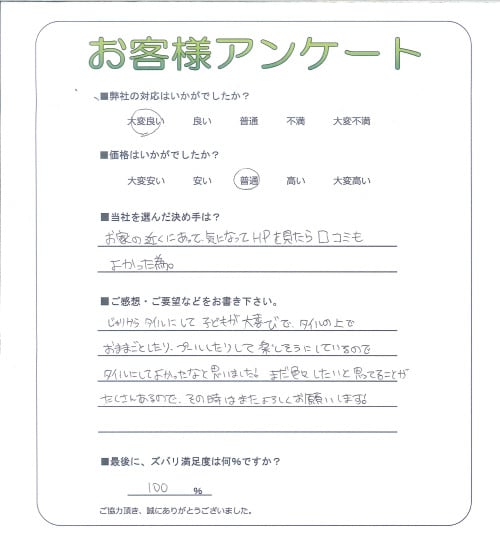 お客様アンケート
■弊社の対応はいかがでしたか?
大変良い 良い 普通 不満 大変不満
■価格はいかがでしたか?
大変安い 安い 普通 高い 大変高い
■当社を選んだ決め手は?
お家の近くにあって、気になってHPを見たら口コミも
よかった為。
■ご感想・ご要望などをお書き下さい。
じゃりからタイルにして子どもが大喜びで、タイルの上で
おままごとしたり、プールしたりして楽しそうにしているので
タイルにしてよかったなと思いました!まだ色々したいと思ってることが
たくさんあるので、その時はまたよろしくお願いします!
■最後に、ズバリ満足度は何%ですか?
100 %
ご協力頂き、誠にありがとうございました。